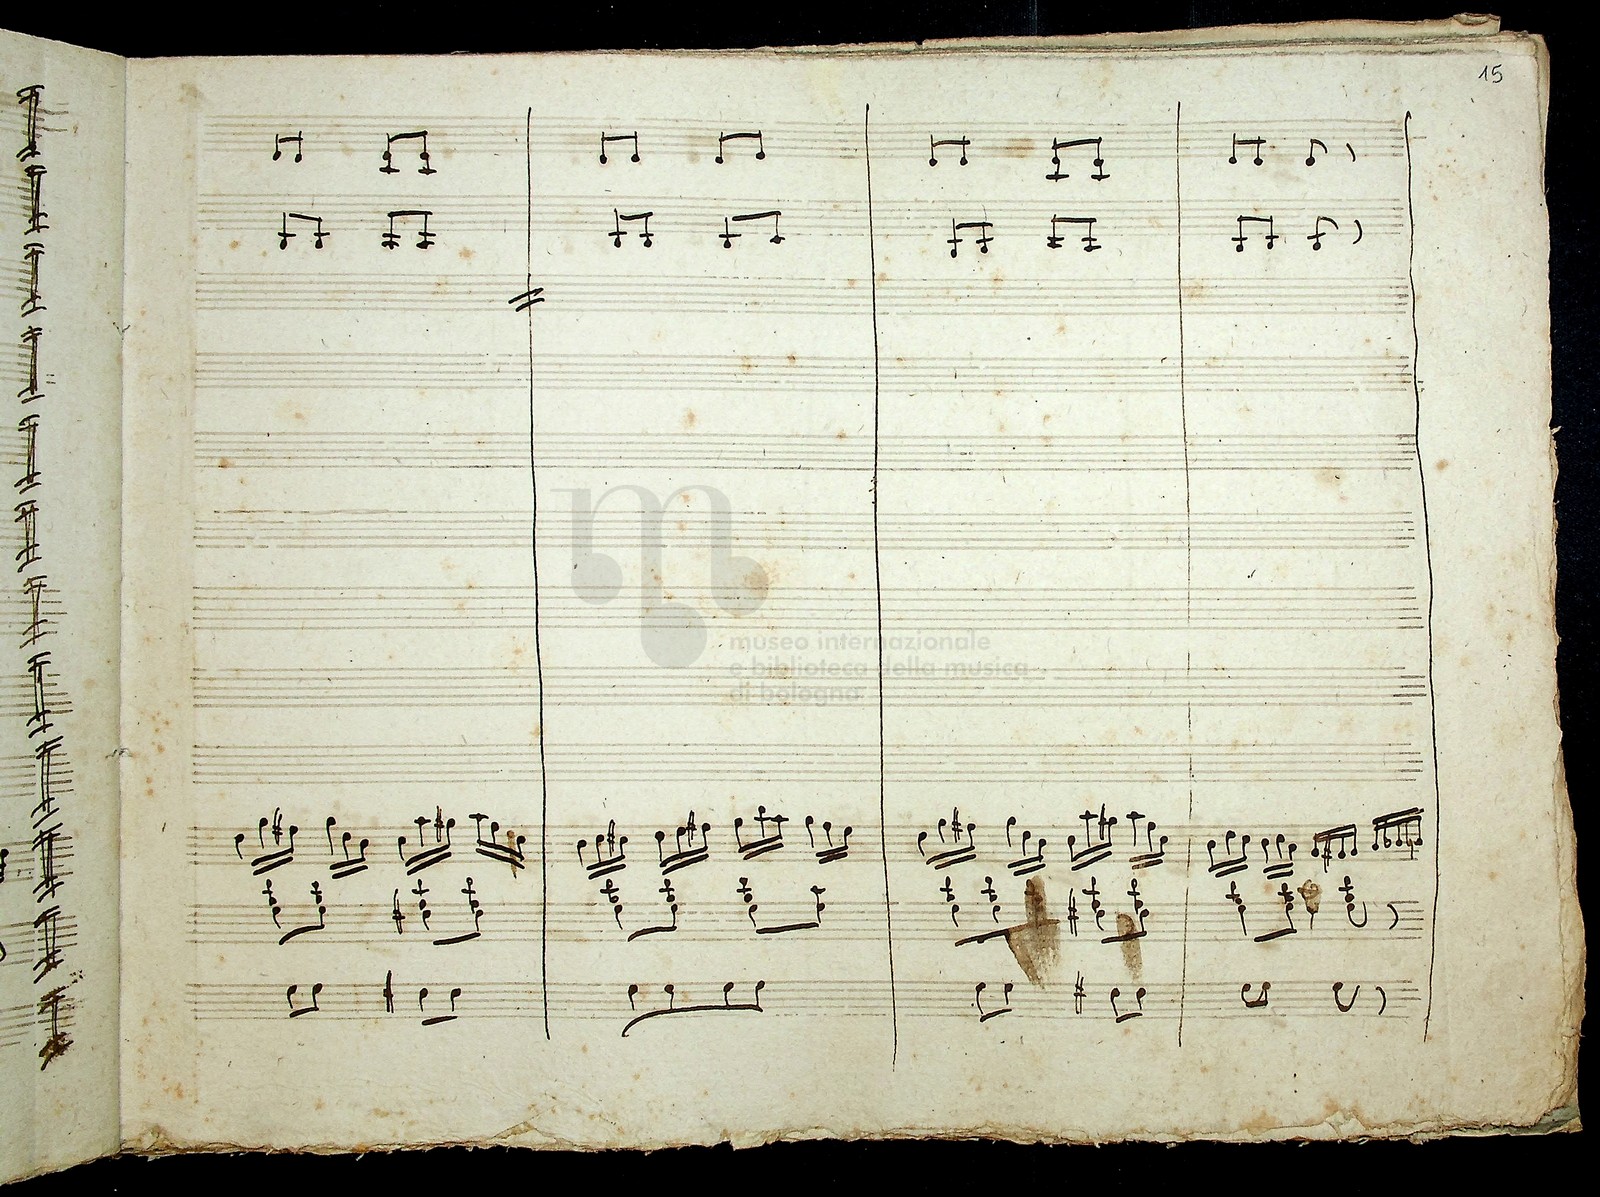 15
museo internazionale
e biblioteca della musica
di bologna